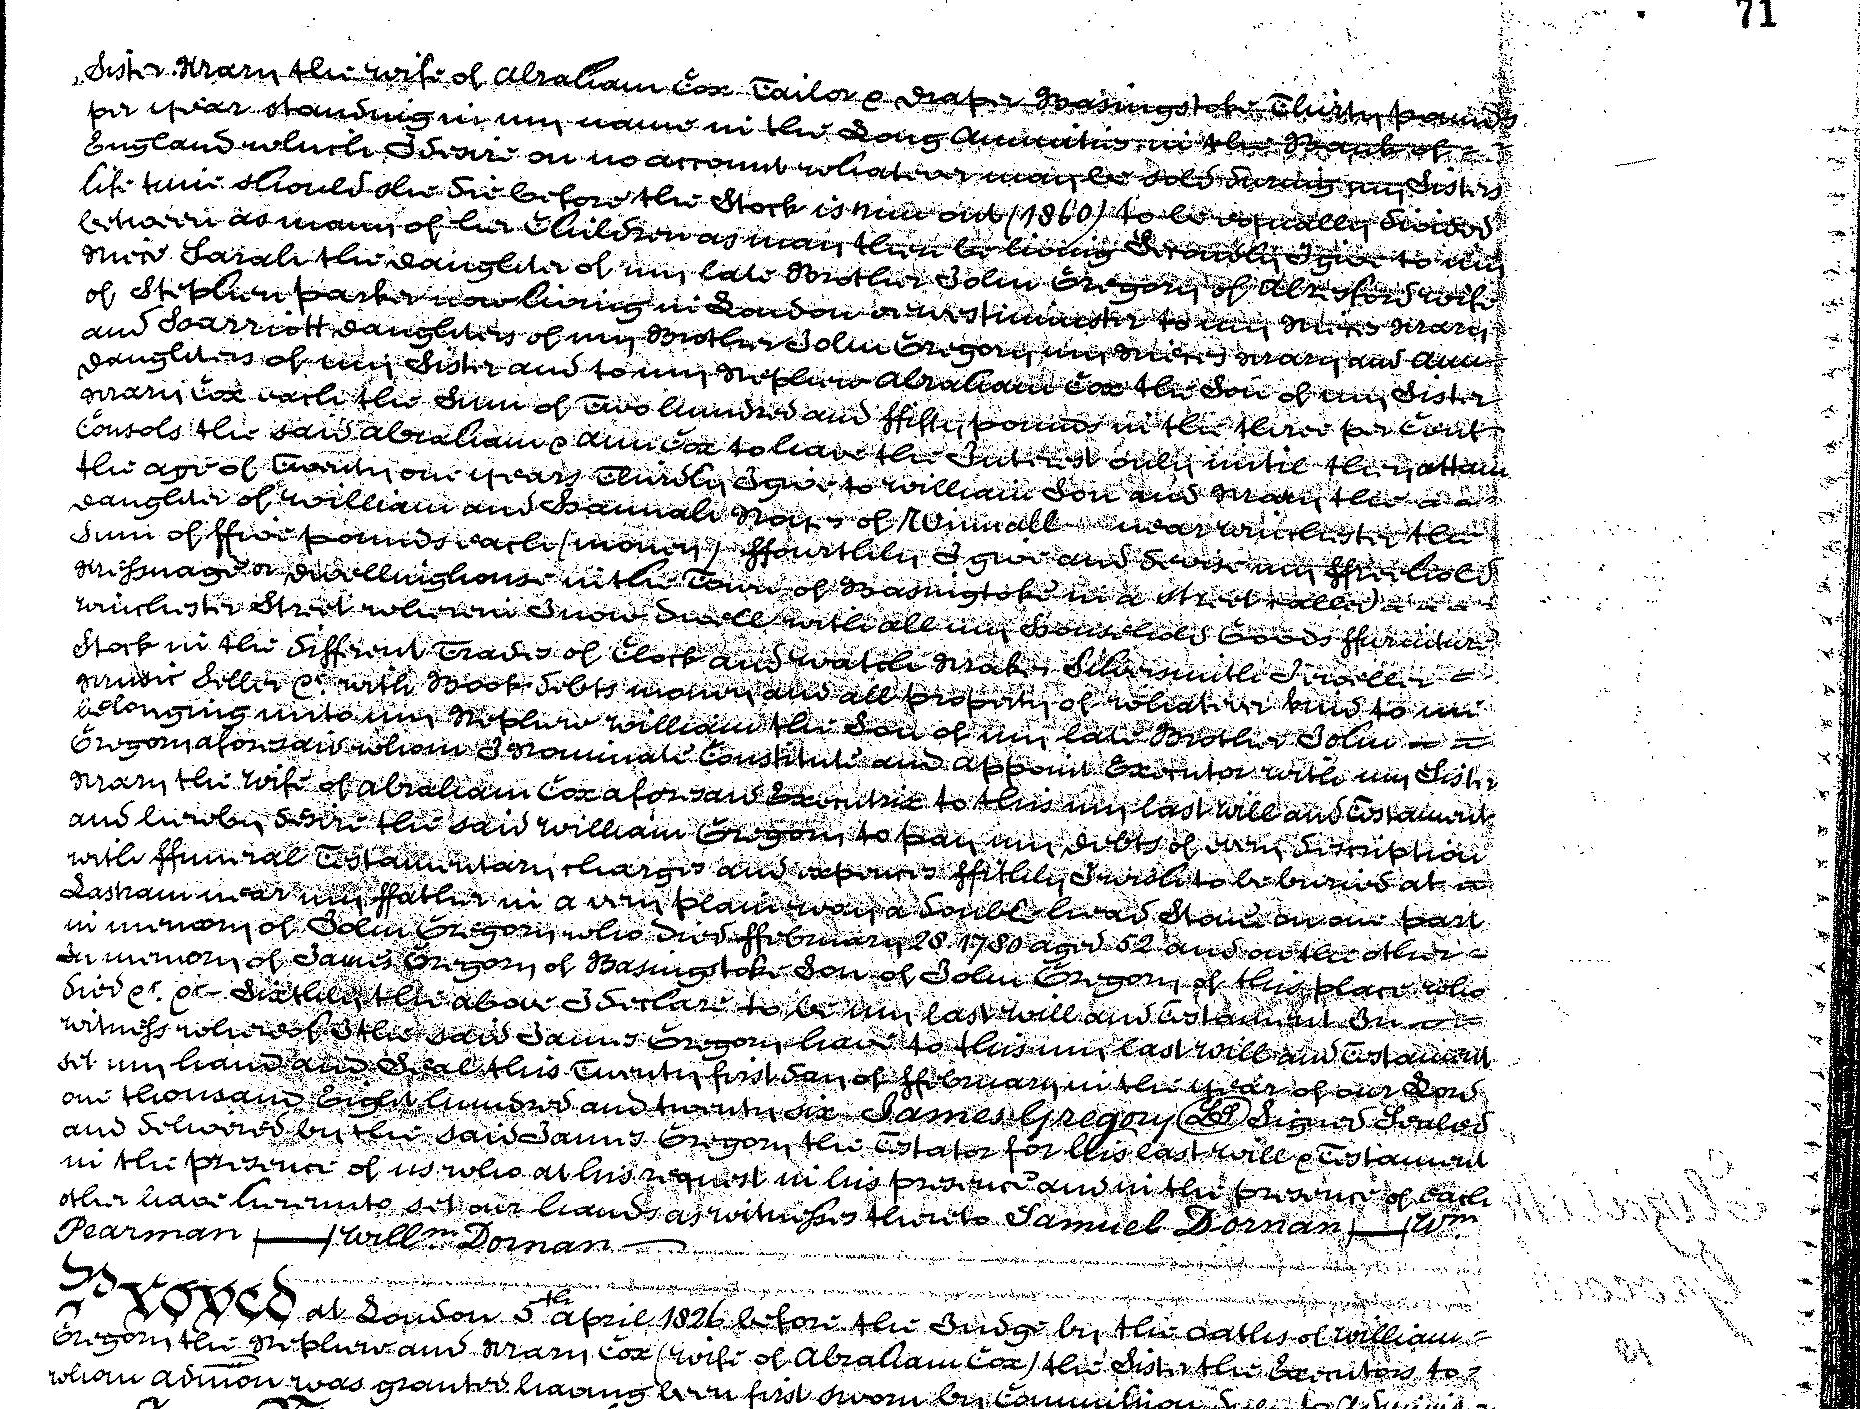 71
Sister Mary the wife of Abraham Cox Tailor & Draper Basingstoke Thirty pounds
per year standing in my name in the Long Annuities in the Bank of =
England which I desire on no account whatever may be sold during my Sisters
life time should she die before the Stock is run out (1860) to be equally divided
between as many of her Children as may then be living Secondly I give to my
Niece Sarah the daughter of my late Brother John Gregory of Alresford wife
of Stephen Parker now living in London or Westminster to my Nieces Mary
and Harriott daughters of my Brother John Gregory my Nieces Mary and Ann
daughters of my Sister and to my Nephew Abraham Cox the Son of my Sister
Mary Cox each the Sum of Two hundred and ffifty pounds in the three per Cent
Consols the said Abraham & Ann Cox to have the Interest only until they attain
the age of Twenty one years Thirdly I give to William Son and Mary the
daughter of William and Hannah Noyes of Winnall near Winchester the
Sum of ffive pounds each (money) ffourthly I give and devise my ffreehold
Messuage or dwellinghouse in the Town of Basingstoke in a street called
Winchester Street wherein I now dwell with all my Household Goods ffurniture
Stock in the different Trades of Clock and Watch Maker Silversmith Jeweller =
Music Seller &c. with Book debts money and all property of whatever kind to me
belonging unto my Nephew William the Son of my late Brother John
Gregory aforesaid whom I Nominate Constitute and appoint Executor with my Sister
Mary the wife of Abraham Cox aforesaid Executrix to this my last will and Testament
and hereby desire the said William Gregory to pay my debts of every discription
with ffuneral Testamentary charges and expences ffifthly I wish to be buried at
Lasham near my ffather in a very plain way a double head Stone on one part
in memory of John Gregory who died ffebruary 28 1780 aged 52 and on the other =
In memory of James Gregory of Basingstoke Son of John Gregory of this place who
died &c. &c. Sixthly the above I declare to be my last will and Testament In
witness whereof I the said James Gregory have to this my last will and Testament
set my hand and Seal this Twenty first day of ffebruary in the year of our Lord
one thousand Eight hundred and twenty six James Gregory (LS) Signed Sealed
and delivered by the said James Gregory the Testator for his last will & Testament
in the presence of us who at his request in his presence and in the presence of each
other have hereunto set our hands as witnesses thereto Samuel Dornan — Wm
Pearman — Willm Dornan
Proved at London 5th April 1826 before the Judge by the oaths of William =
Gregory the Nephew and Mary Cox (wife of Abraham Cox) the Sister the Executors to
whom admon was granted having been first sworn by Commission duly to Adminis